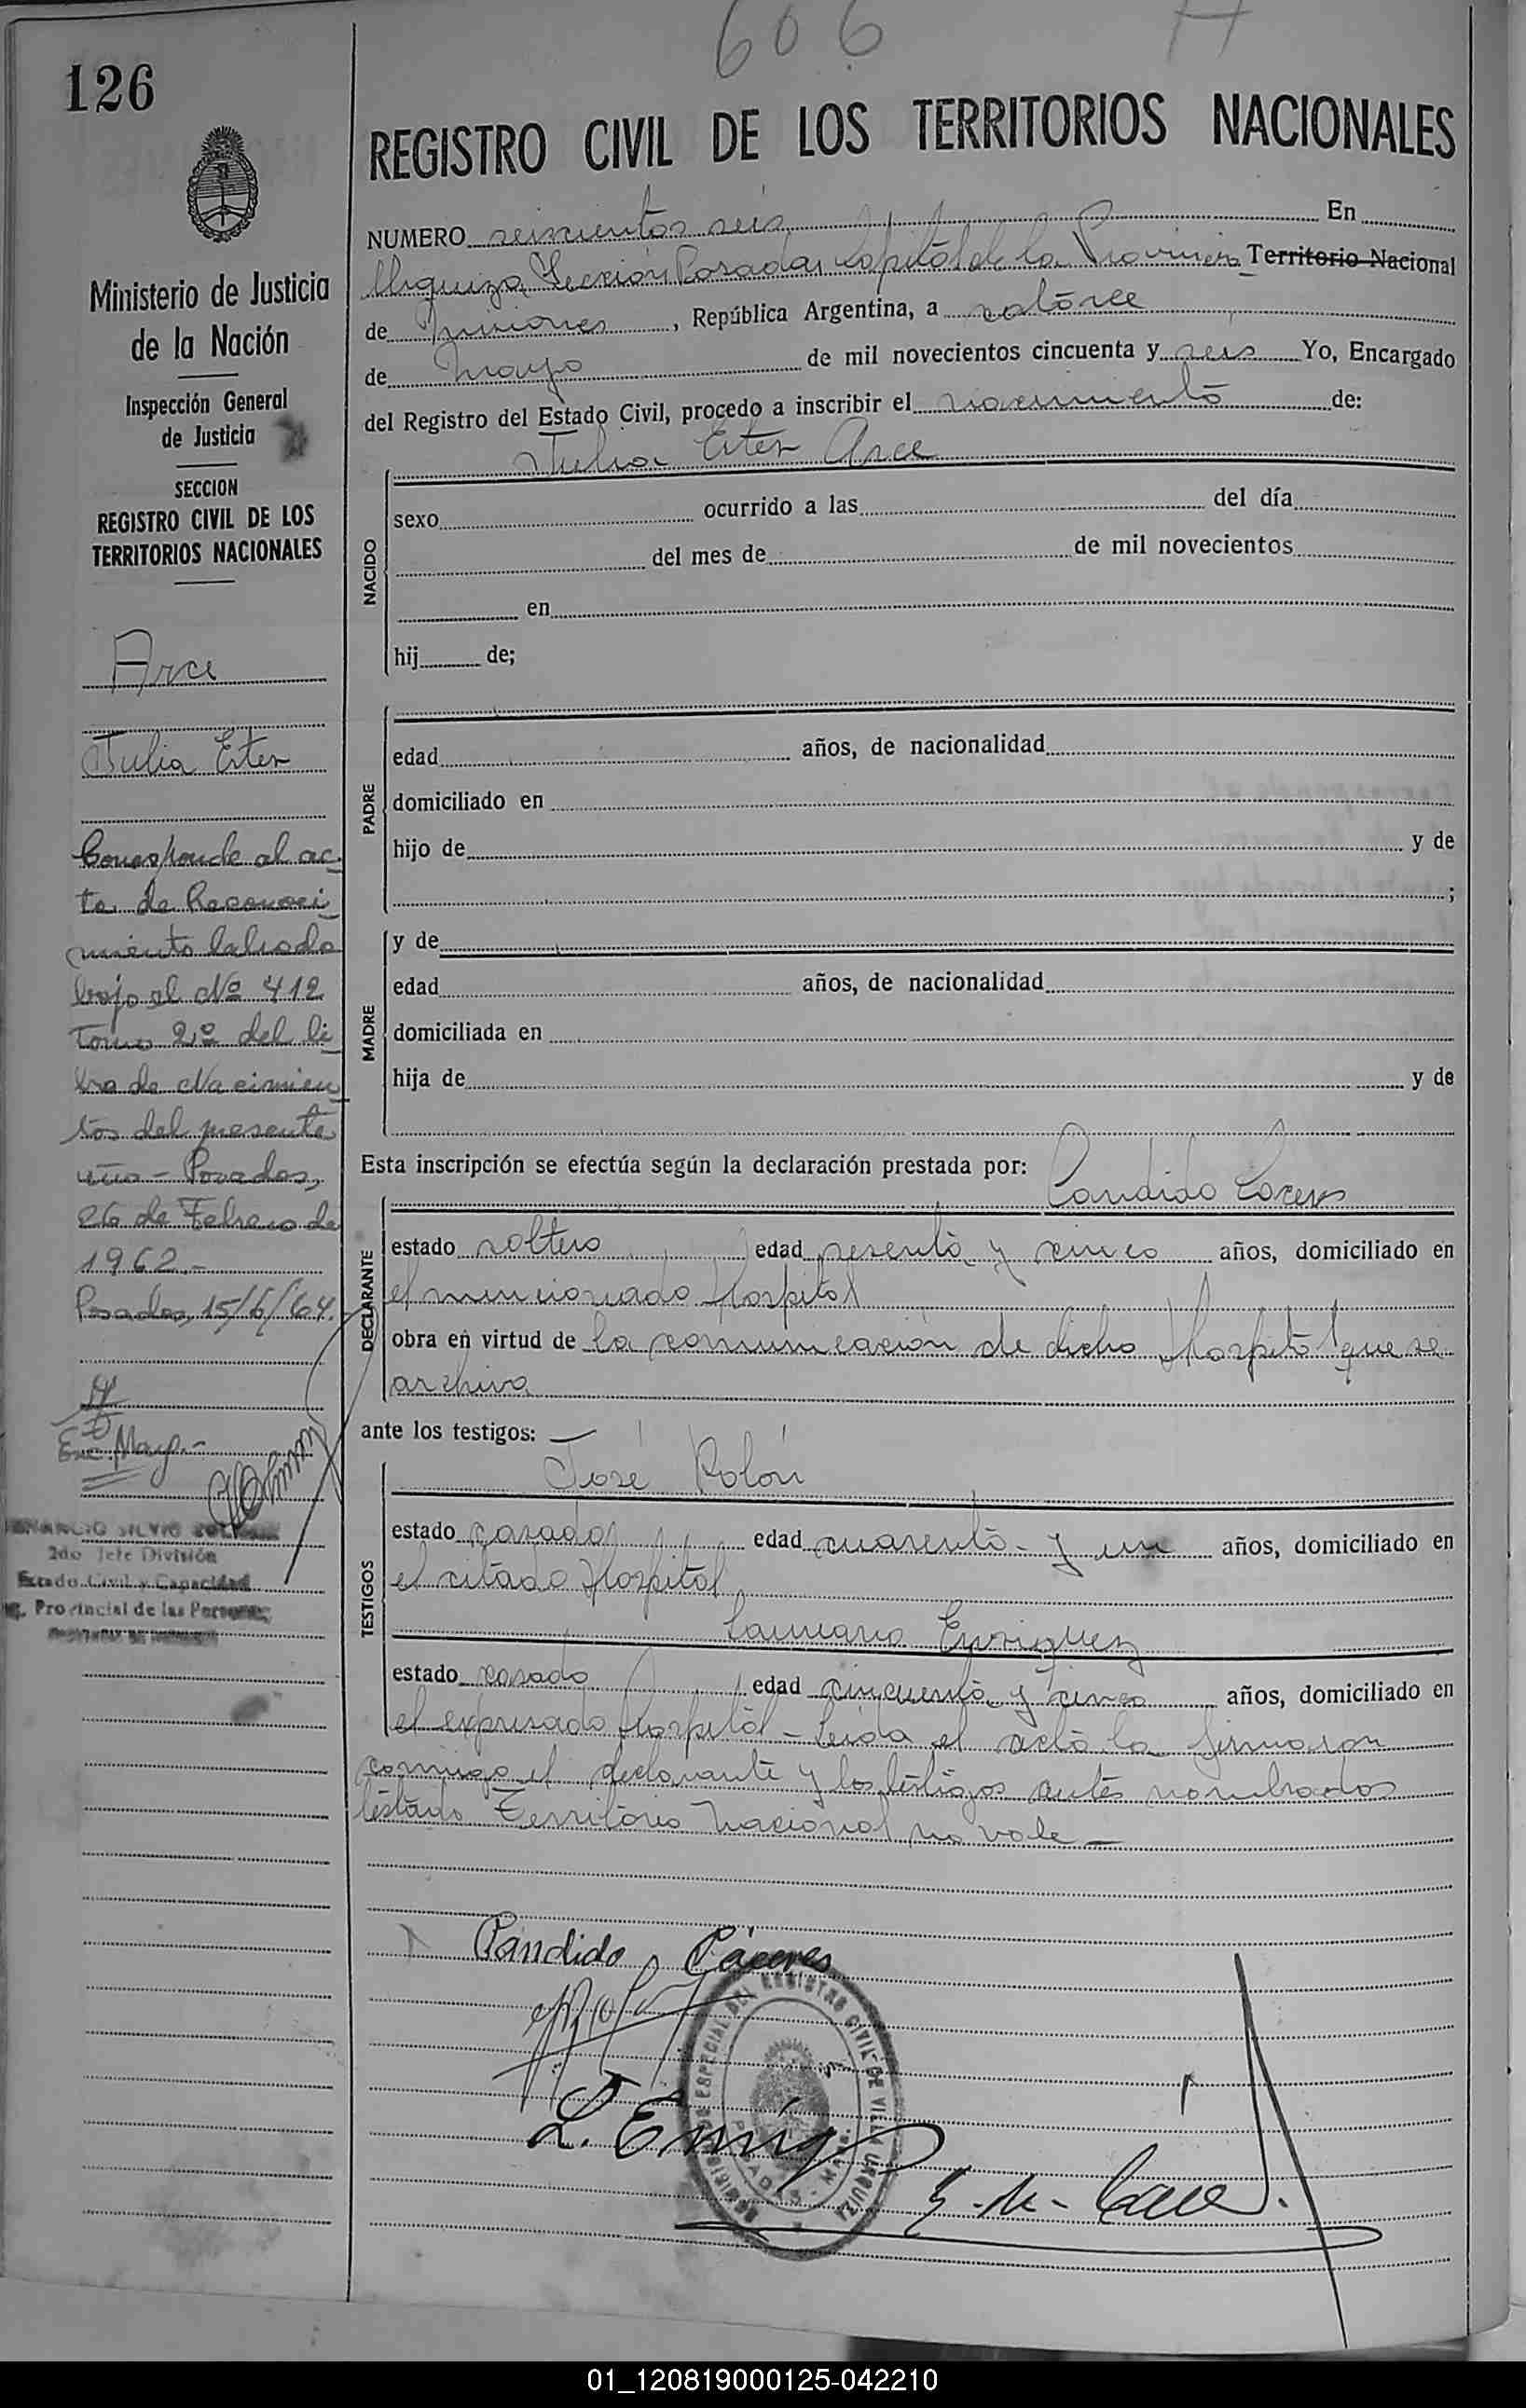 606 A
126
REGISTRO CIVIL DE LOS TERRITORIOS NACIONALES
NUMERO seiscientos seis En
Urquiza Sección Posadas Capital de la Provincia Territorio Nacional
de Misiones, República Argentina, a catorce
de Mayo de mil novecientos cincuenta y seis Yo, Encargado
del Registro del Estado Civil, procedo a inscribir el nacimiento de:
Julia Ester Arce
NACIDO
sexo ocurrido a las del día
del mes de de mil novecientos
en
hij de;
PADRE
edad años, de nacionalidad
domiciliado en
hijo de y de
;
MADRE
y de
edad años, de nacionalidad
domiciliada en
hija de y de
Esta inscripción se efectúa según la declaración prestada por: Candido Caceres
DECLARANTE
estado soltero edad sesenta y cinco años, domiciliado en
el mencionado Hospital
obra en virtud de la comunicación de dicho Hospital que se
archiva
ante los testigos:
José Rolón
TESTIGOS
estado casado edad cuarenta y un años, domiciliado en
el citado Hospital
Laureano Enriquez
estado casado edad cincuenta y cinco años, domiciliado en
el expresado Hospital - Leida el acta la firmaron
conmigo el declarante y los testigos antes nombrados
testado Territorio Nacional no vale -
Candido Cáceres
L. Enriq
Ministerio de Justicia
de la Nación
Inspección General
de Justicia
SECCION
REGISTRO CIVIL DE LOS
TERRITORIOS NACIONALES
Arce
Julia Ester
Corresponde al ac-
ta de Reconoci-
miento labrado
bajo el Nº 412
Tomo 2º del li-
bro de Nacimien-
tos del presente
año - Posadas,
26 de Febrero de
1962.-
Posadas, 15/6/64.
Enc. Mayo.-
SILVIO
2do Jefe División
Estado Civil y Capacidad
Provincial de las Personas
ESPECIAL DEL REGISTRO CIVIL DE VILLA URQUIZA
POSADAS - MS.
01_120819000125-042210